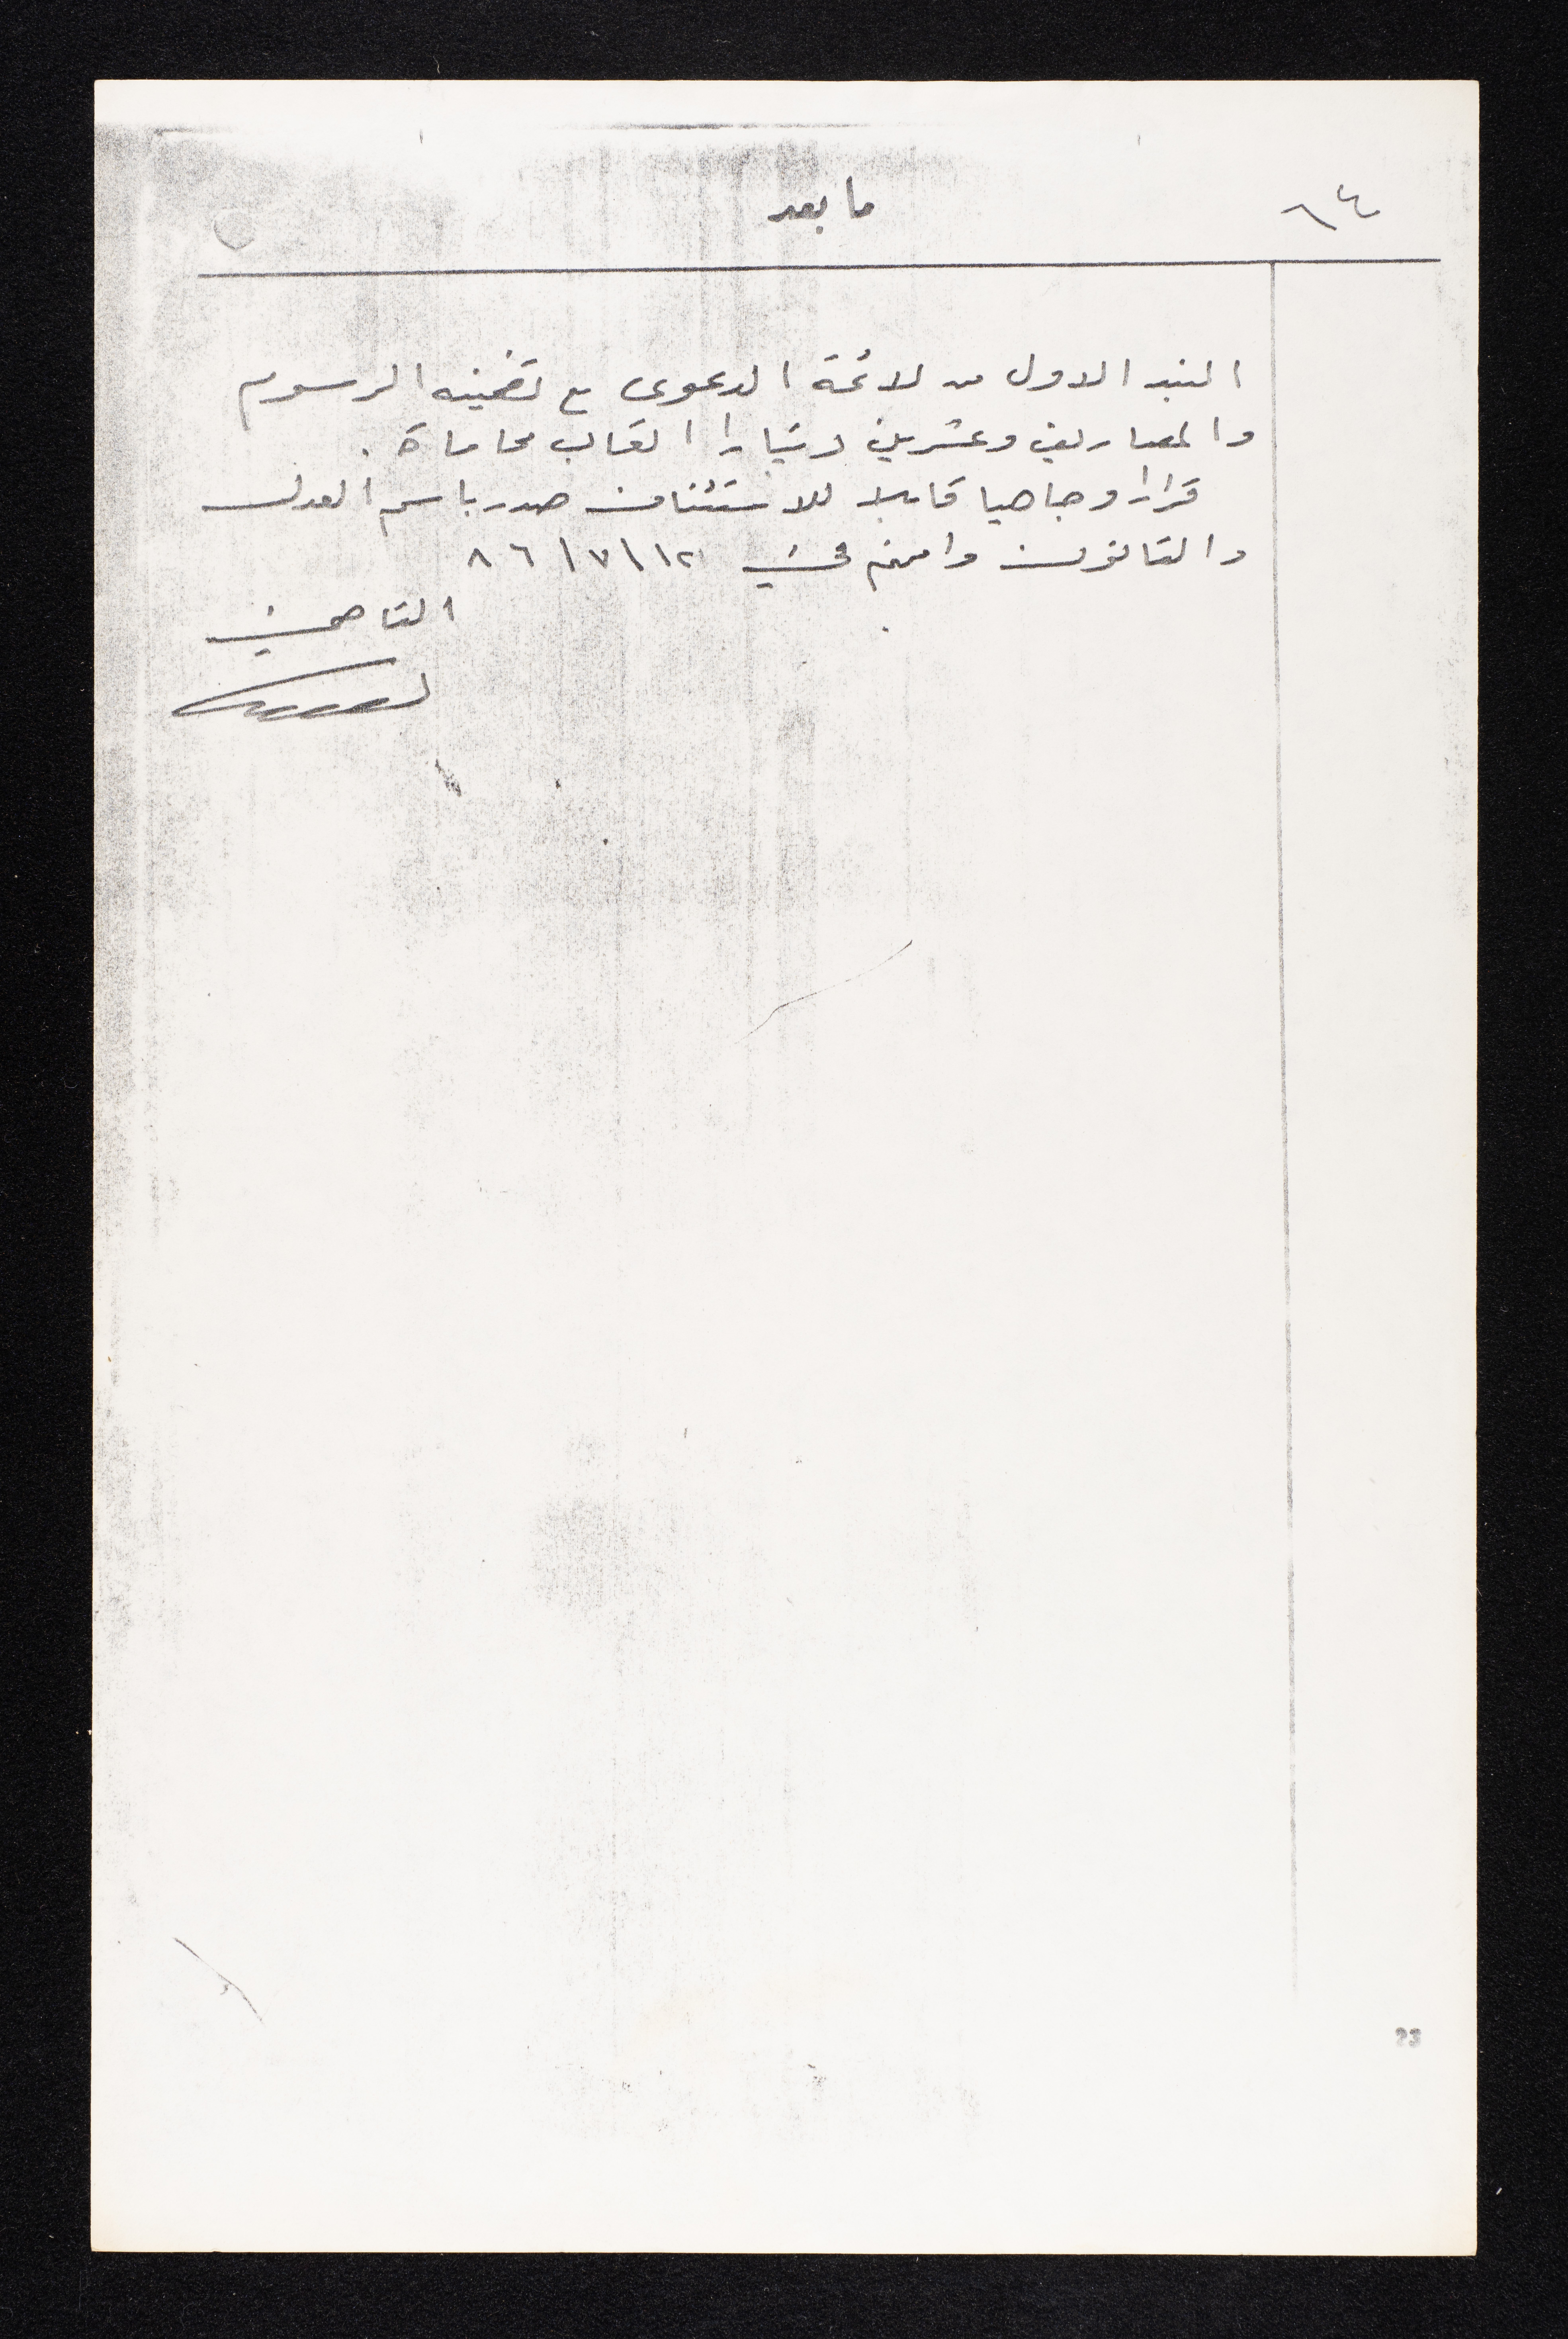 ٦٤
ما بعد
البند الاول من لائحة الدعوى مع تضمينه الرسوم
والمصاريف وعشرين دينارا اتعاب محاماة .
قرارا وجاهيا قابلا للاستئناف صدر باسم العدل
والقانون وافهم في ١٢/٧/٨٦
القاضي
23